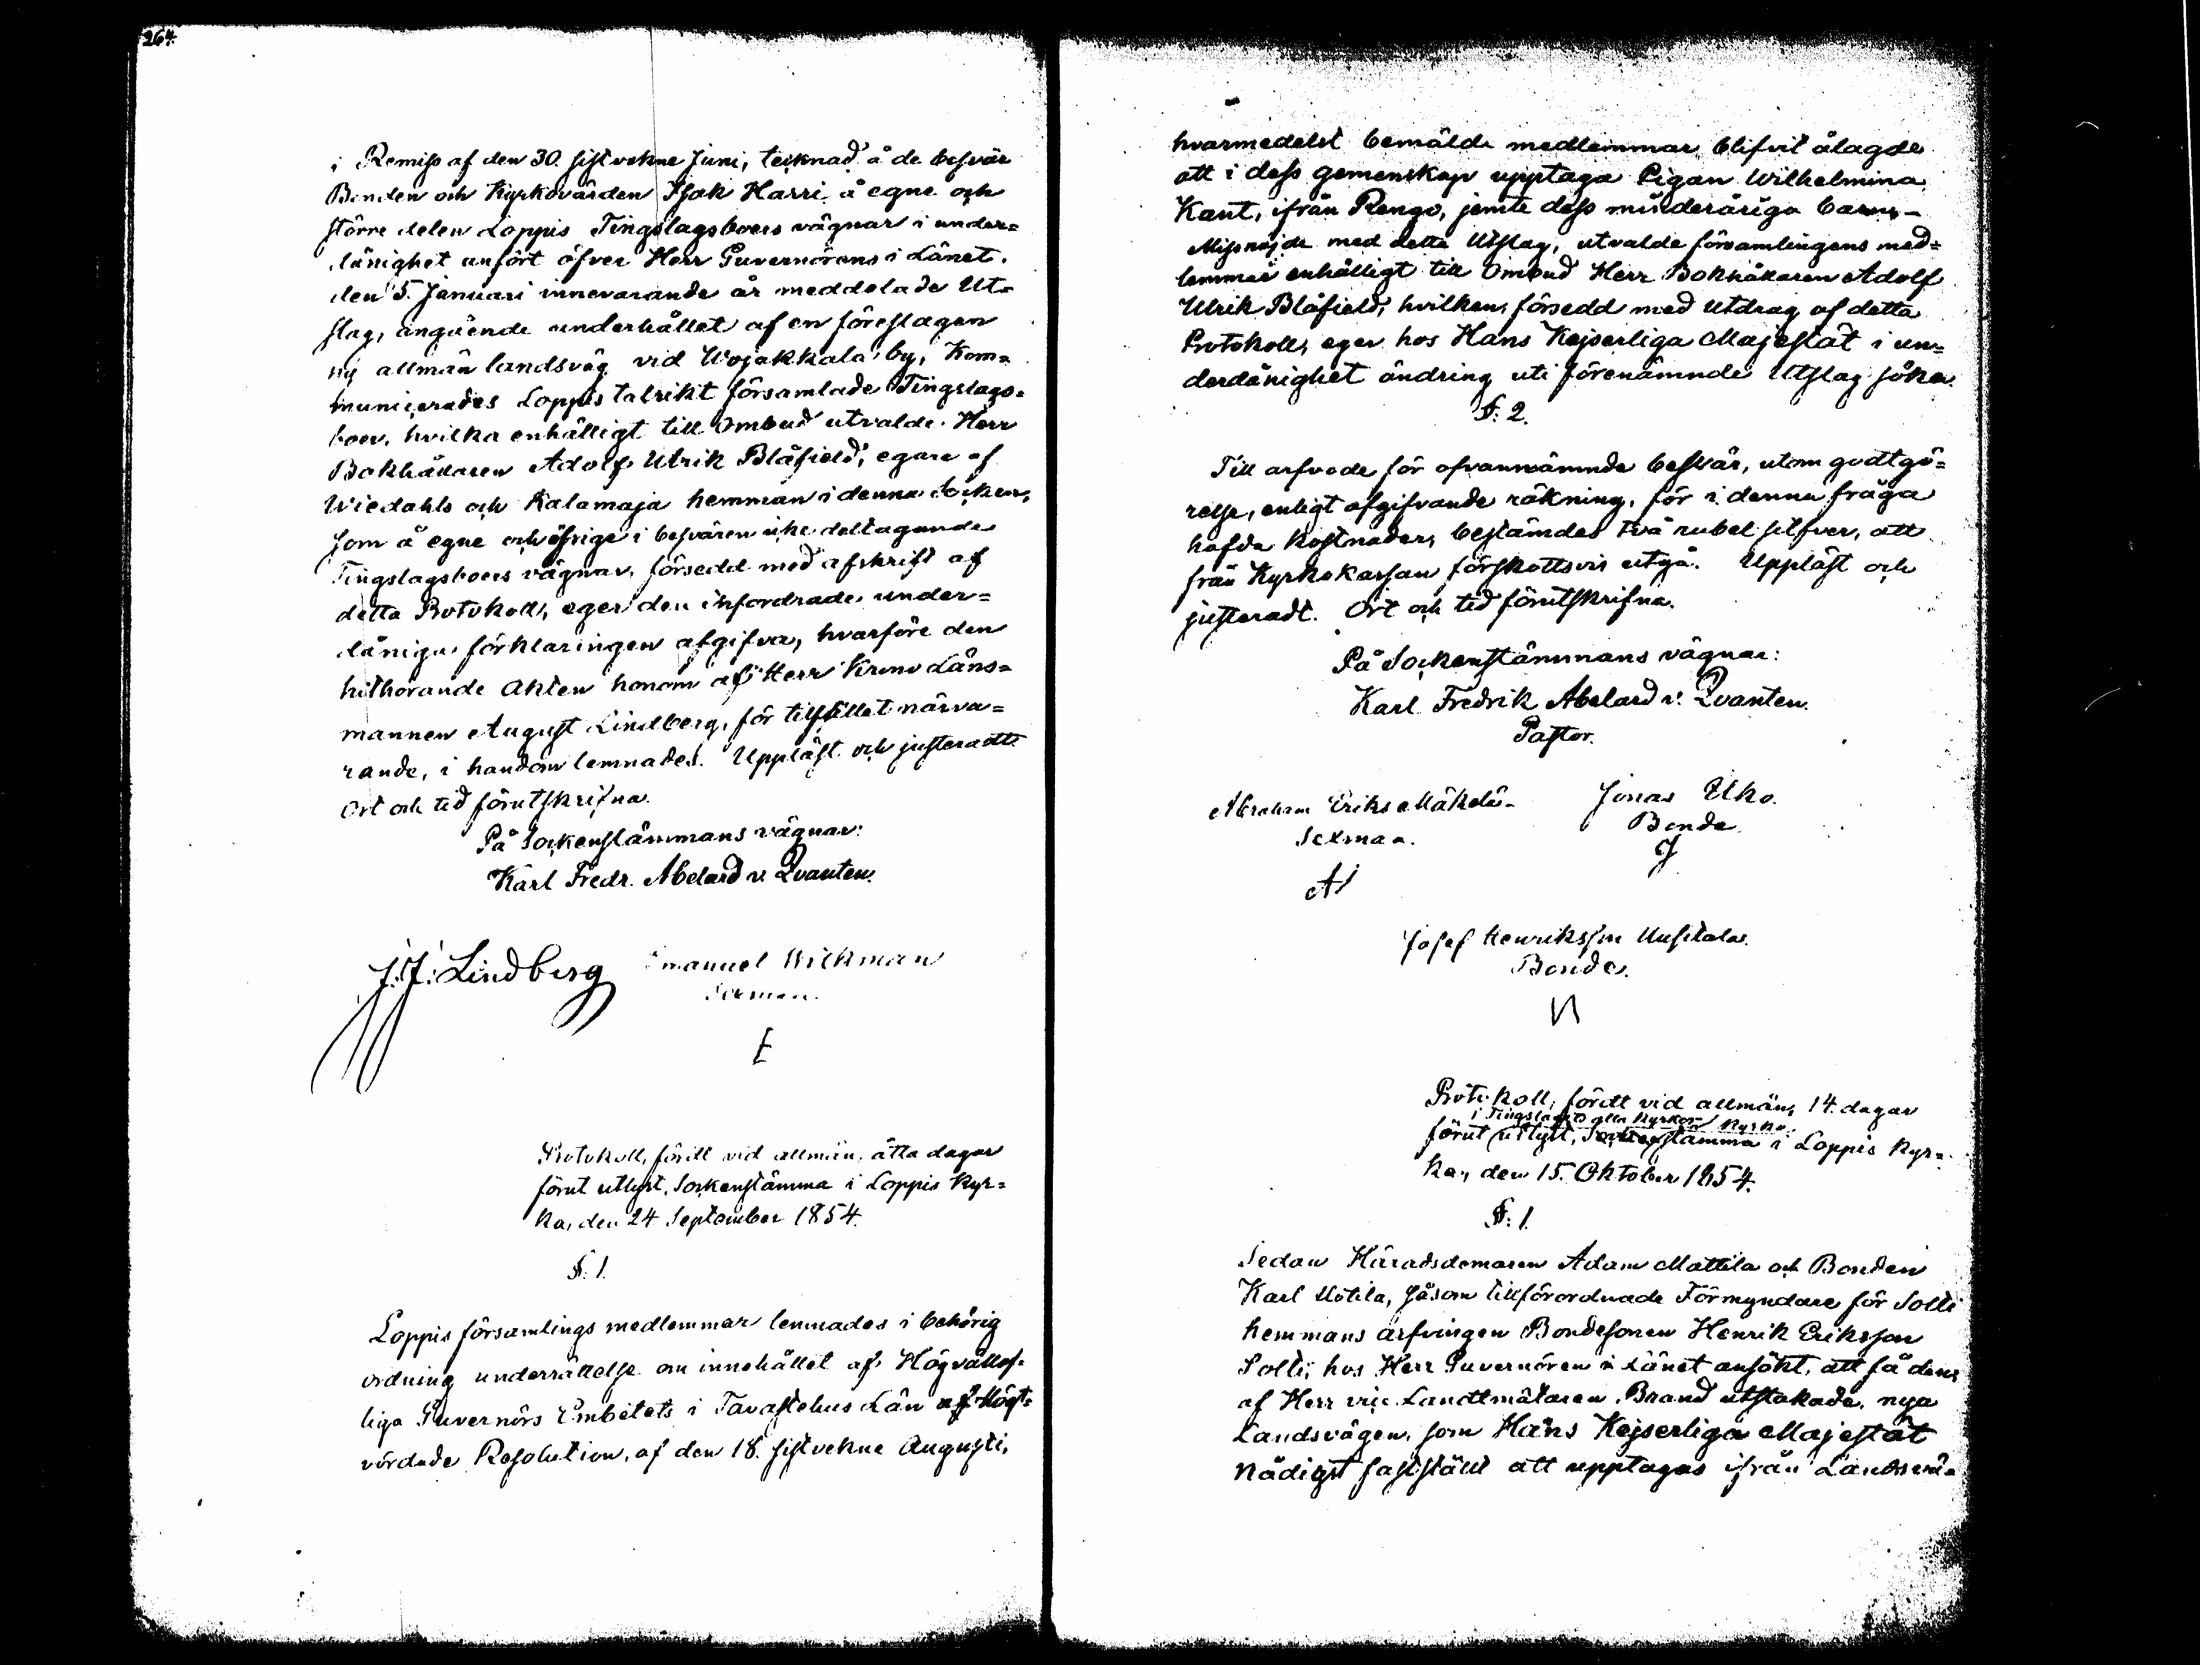 264.
i Remiss af den 30. sistvekne Juni, tecknad å de besvär
Bonden och Kyrkovärden Isak Harri å egne och
större delen Loppis Tingslagsboers vägnar i under=
dånighet anfört öfver Herr Guvernörens i Länet.
den 5. Januari innevarande år meddelade Ut=
slag, angående underhållet af en föreslagen
ny allmän landsväg vid Wojakkala by, Kom=
municerades Loppis talrikt församlade Tingslags=
boer, hvilka enhälligt till Ombud utvalde Herr
Bokhållaren Adolf Ulrik Blåfield, egare af
Wiedahls och Kalamaja hemman i denna Socken,
som å egne och öfrige i besvären icke deltagande
Tingslagsboers vägnar, försedd med afskrift af
detta Protokoll, eger den infordrade under=
dåniga förklaringen afgifva, hvarföre den
hithörande Akten honom af Herr Krono Läns=
mannen August Lindberg, för tillfället närva=
rande, i handom lemnades. Uppläst och justeradt.
Ort och tid förutskrifna.
På Sockenstämmans vägnar:
Karl Fredr. Abelard v. Qvanten.
J. J. Lindberg
Emanuel Wickman
Sexman.
E
Protokoll, fördt vid allmän, åtta dagar
förut utlyst, Sockenstämma i Loppis Kyr=
ka, den 24 September 1854.
§. 1.
Loppis församlings medlemmar lemnades i behörig
ordning underrättelse om innehållet af Högvällof=
liga Guvernörs Embetets i Tavastehus Län af Högt=
vördade Resolution, af den 18. sistvekne Augusti,
hvarmedelst bemälde medlemmar blifvit ålagde
att i dess gemenskap upptaga Pigan Wilhelmina
Kant, ifrån Rengo, jemte dess minderåriga barn,-
Missnöjde med detta Utslag, utvalde församlingens med=
lemmar enhälligt till Ombud Herr Bokhållaren Adolf
Ulrik Blåfield, hvilken, försedd med utdrag af detta
Protokoll, eger hos Hans Kejserliga Majestät i un=
derdånighet ändring uti förenämnde Utslag söka.
§. 2.
Till arfvode för ofvannämnde besvär, utom godtgö=
relse, enligt afgifvande räkning, för i denna fråga
hafda kostnader, bestämdes två rubel silfver, att
från Kyrkokassan förskottsvis utgå. Uppläst och
justeradt. Ort och tid förutskrifna.
På Sockenstämmans vägnar:
Karl Fredrik Abelard v. Qvanten.
Pastor.
Abraham Eriks Mäkelä
Sexman.
A
Jonas Uko.
Bonde
J
Josef Henriksson Uusitalo.
Bonde.
Protokoll, fördt vid allmän, 14. dagar
i Tingslagets alla Kyrkor Kyrka
förut utlyst, Sockenstämma i Loppis Kyr=
ka, den 15. Oktober 1854.
§. 1.
Sedan Häradsdomaren Adam Mattila och Bonden
Karl Uotila, såsom tillförordnade Förmyndare för Solti
hemmans arfvingen Bondesonen Henrik Eriksson
Solti, hos Herr Guvernören i Länet ansökt, att få den,
af Herr vice Landtmätaren Brand utstakade, nya
Landsvägen, som Hans Kejserliga Majestät
Nådigst fastställt att upptagas ifrån Landsvä=